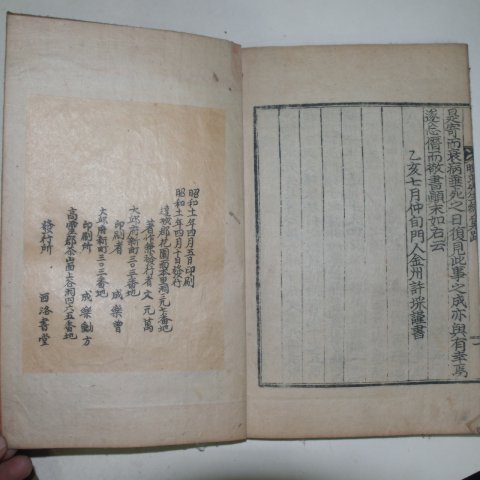 是寄而衰病垂死之日復見此事之成亦與有幸焉
遂忘僭而敬書顚末如右云
乙亥七月仲旬門人金州許埰謹書
昭和十一年四月五日印刷
昭和十一年四月十日發行
達城郡花園面本里洞
著作兼發行者 文元萬
大邱府新町三〇三番地
印刷者 成樂曾
大邱府新町三〇三番地
印刷所 成樂勳方
高靈郡茶山面上谷洞四六五番地
發行所 西洛書堂